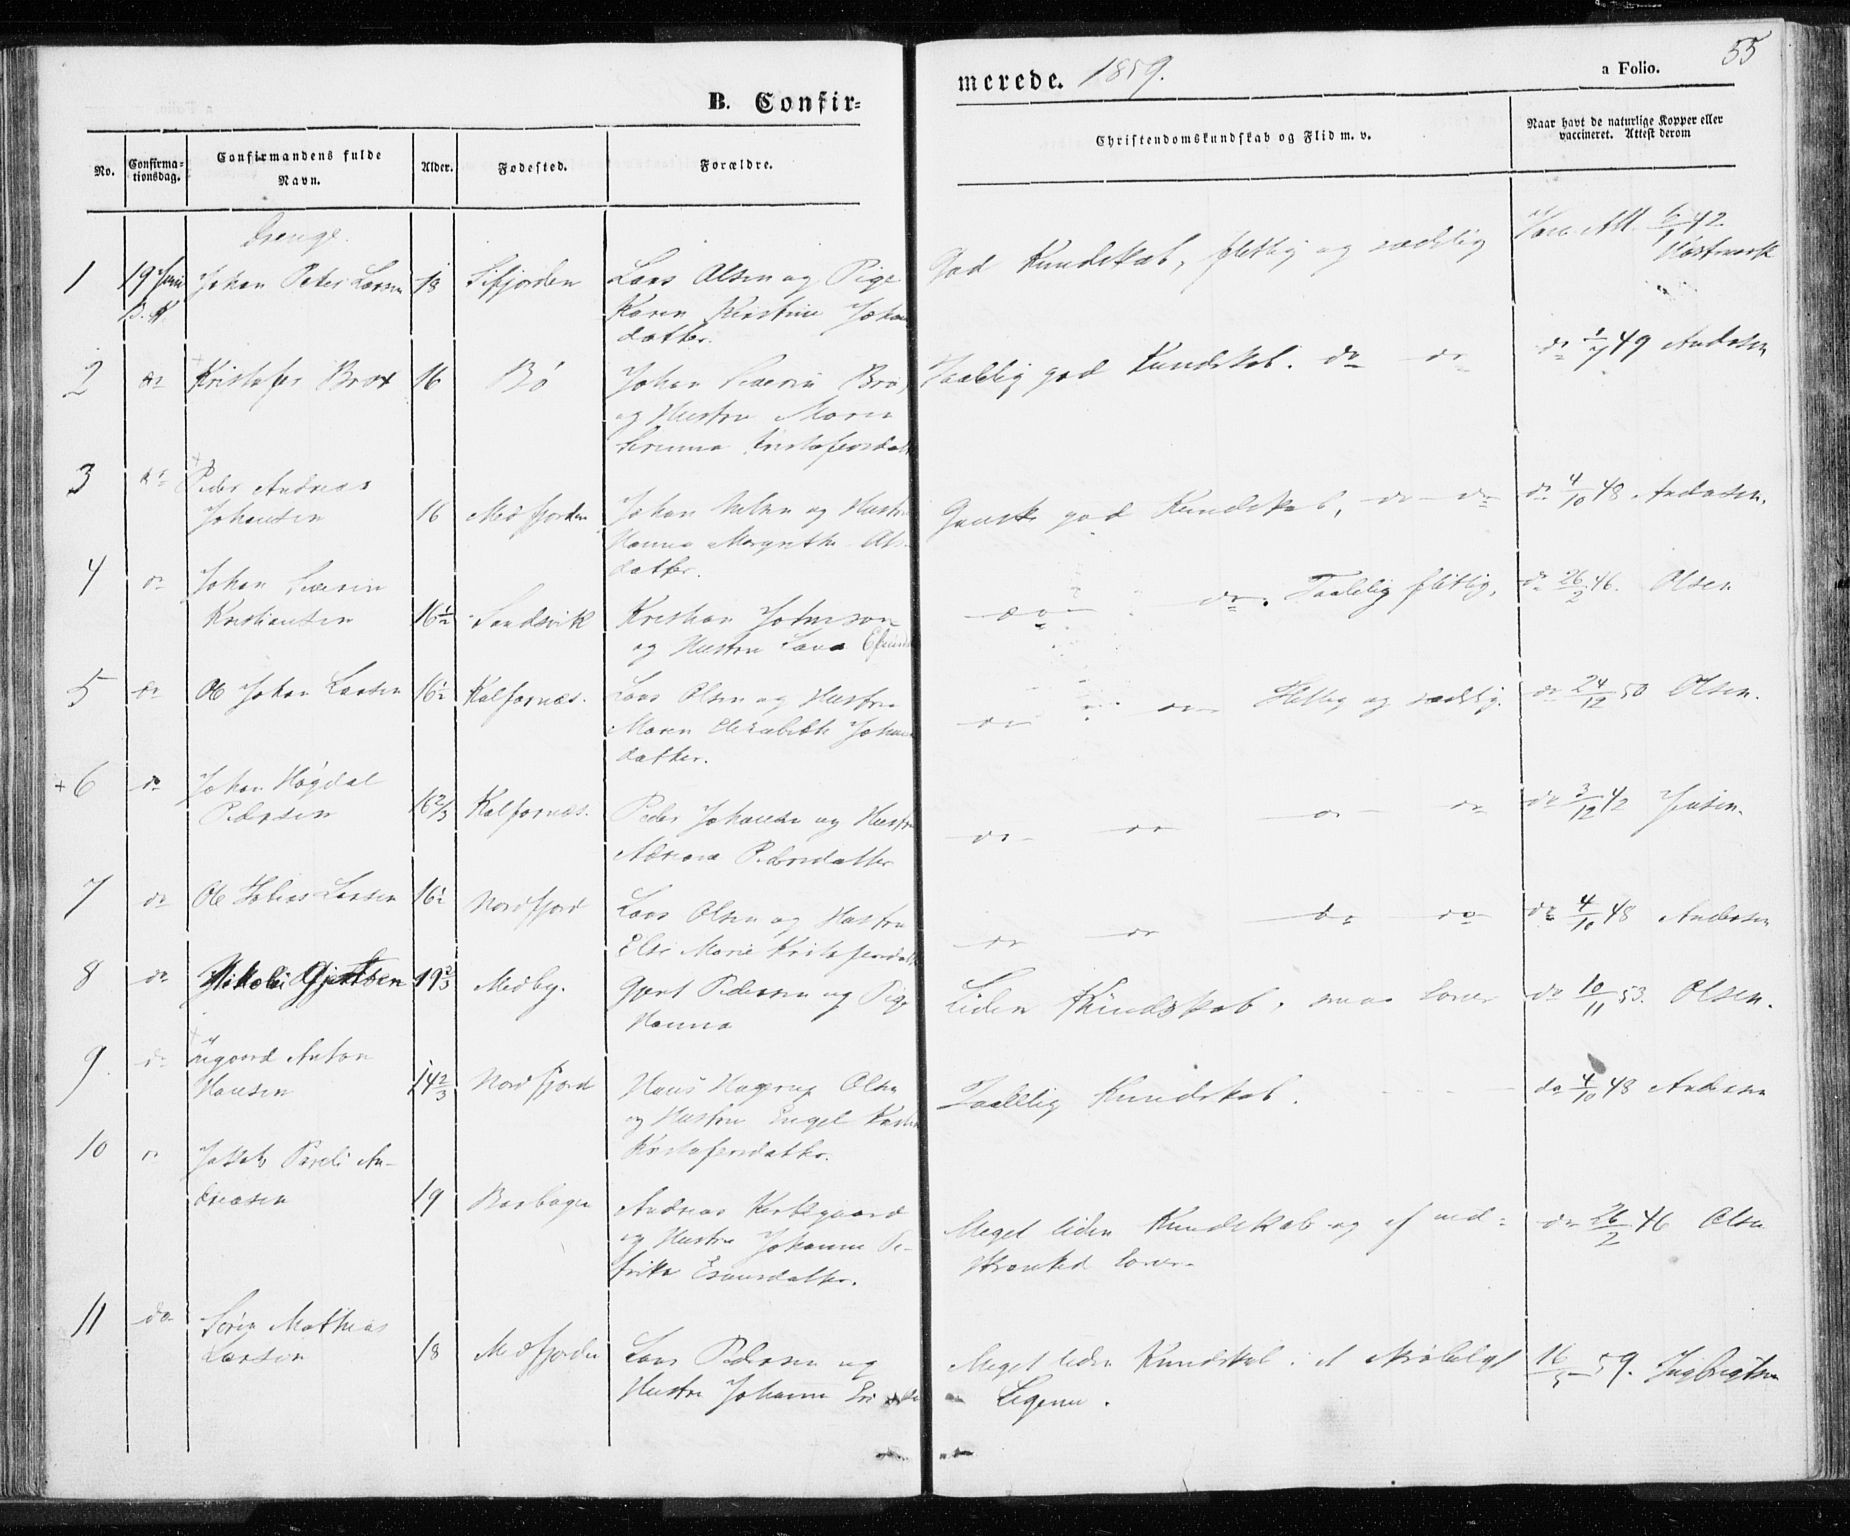 B. Confir=
merede. 1859.
a Folio. 55
No.
Confirma=
tionsdag.
Confirmandens fulde
Navn.
Alder.
Fødested.
Forældre.
Christendomskundskab og Flid m. v.
Naar havt de naturlige Kopper eller
vaccineret. Attest derom
Drenge.
1 19 Juni Johan Peter Larsen 18 Sifjorden Lars Olsen og Pige
Karen Kirstine Johans
datter.
God Kundskab, flittig og sædelig
Vacc. Att. 42
2 do Kristofer Brox 16 Bø Johan Severin Brox
og Hustru Maren
Kristofersdatt
Taalelig god Kundskab. do do
do 49 Andersen
3 do Peder Andreas
Johansen 16 Medfjorden Johan og Hustru
Hanna Margrethe Ols
datter.
Ganske god Kundskab, do do
do 4/10 48. Andersen.
4 do Johan Severin
Kristiansen 16½ Sandsvik Kristian Johnson
og Hustru Lava
do do. Taalelig flittig,
do 26/2 46. Olsen
5 do Ole Johan Larsen 16½ Kalfarnæs. Lars Olsen og Hustru
Maren Elisabeth Johans
datter.
do do Flittig og sædelig.
do 24/12 50 Olsen.
+ 6 do Johan Høgdal
Pedersen 16 2/3 Kalfarnæs. Peder Johansen og Hustru
Pedersdatter
do do do do
do 3/12 42 Jensen.
7 do Ole Tobias Larsen 16½ Nordfjord Lars Olsen og Hustru
Else Marie Kristofersdatt
do do do do
do 4/10 48 Andersen
8 do Nikolai Gjertsen 19 2/3 Medby. Gjert Pedersen og Pige
Hanna
Liden Kundskab, smaa Evner
do 10/11 53. Olsen.
9 do Anton
Hansen 14 2/3 Nordfjord Hans Hagerup Olsen
og Hustru Engel
Kristofersdatter.
Taalelig Kundskab.
do 4/10 48 Andersen
10 do An-
dreasen 19 Andreas
og Hustru Johanna
Esaiasdatter.
Meget liden Kundskab og af ind=
skrænked Evner.
do 26/2 46 Olsen
11 do Sørin Mathias
Larsen 18 Medfjorden Lars Pedersen og
Hustru Johanna
Meget liden Kundskab, et skrøbeligt
Legeme.
16/5 59. Ingbrigtsen